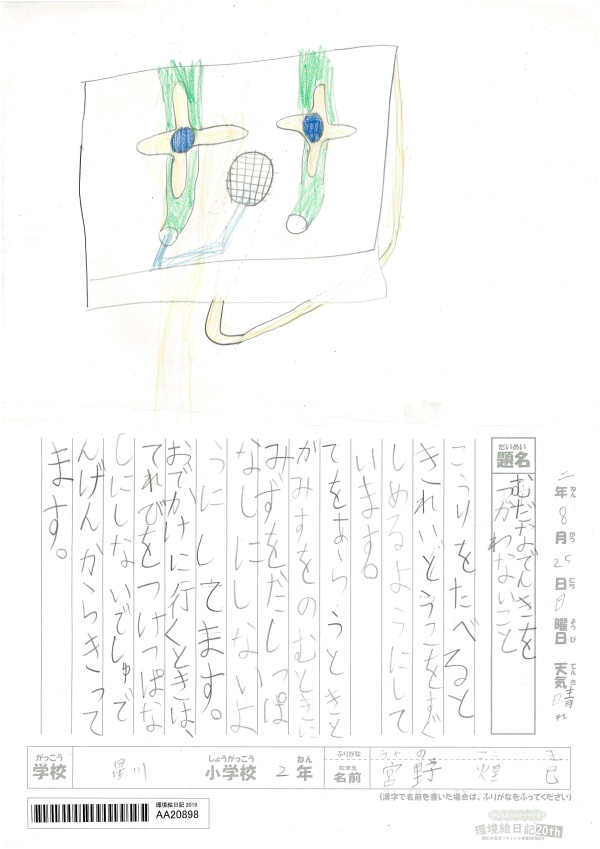 二年8月25日日曜日 天気晴れ
ねん がつ にち ようび てんき
だいめい
題名
むだなでんきを
つかわないこと
こうりをたべると
きれいどうこをすぐ
しめるようにして
います。
てをあらうときと
かみすをのむときに
みずをだしっぱ
なしにしないよ
うにしてます。
おでかけに行くときは、
てれびをつけっぱな
しにしないでしゅで
んげんからきって
ます。
がっこう
学校 星川
しょうがっこう ねん
小学校 2年
ふりがな
なまえ
名前 宮野 煌 巳
(漢字で名前を書いた場合は、ふりがなをふってください)
環境絵日記2019
AA20898
環境絵日記20th